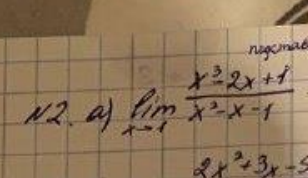 подстав
№2. а) lim x→1 (x³-2x+1)/(x³-x-1)
2x³+3x-5